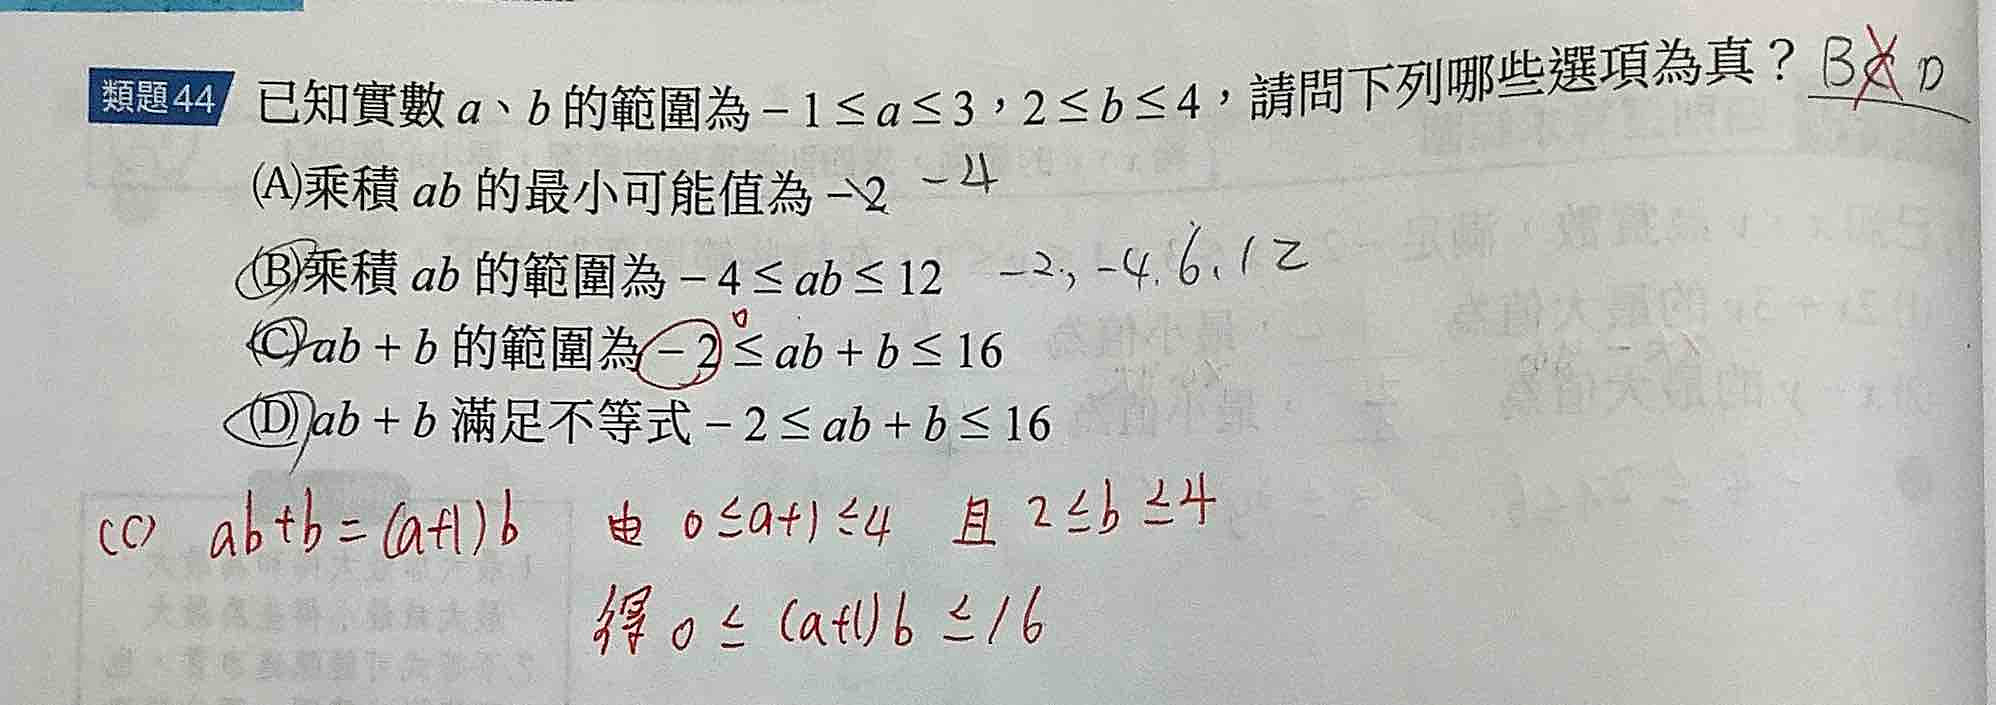 類題44 已知實數 a、b 的範圍為 – 1 ≤ a ≤ 3，2 ≤ b ≤ 4，請問下列哪些選項為真？ B C D
(A)乘積 ab 的最小可能值為 – 2 -4
(B)乘積 ab 的範圍為 – 4 ≤ ab ≤ 12 -2, -4, 6, 12
(C) ab + b 的範圍為 – 2 ≤ ab + b ≤ 16 0
(D) ab + b 滿足不等式 – 2 ≤ ab + b ≤ 16
(C) ab+b = (a+1)b 由 0 ≤ a+1 ≤ 4 且 2 ≤ b ≤ 4
得 0 ≤ (a+1)b ≤ 16